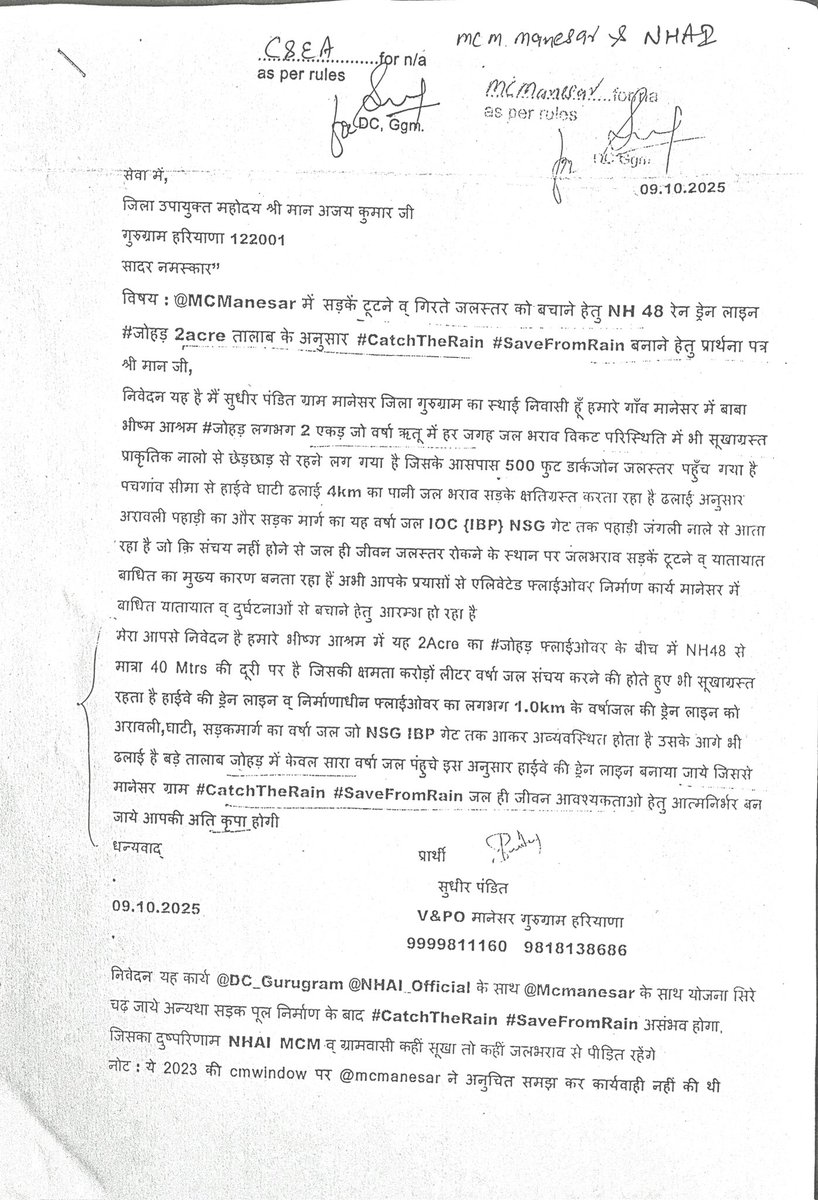 MCM. Manesar & NHAI
CSEA..............for n/a
as per rules
DC, Ggm.
MCManesar....for n/a
as per rules
DC, Ggm.
09.10.2025
सेवा में,
जिला उपायुक्त महोदय श्री मान अजय कुमार जी
गुरुग्राम हरियाणा 122001
सादर नमस्कार”
विषय : @MCManesar में सड़कें टूटने व् गिरते जलस्तर को बचाने हेतु NH 48 रेन ड्रेन लाइन
#जोहड़ 2acre तालाब के अनुसार #CatchTheRain #SaveFromRain बनाने हेतु प्रार्थना पत्र
श्री मान जी,
निवेदन यह है मैं सुधीर पंडित ग्राम मानेसर जिला गुरुग्राम का स्थाई निवासी हूँ हमारे गाँव मानेसर में बाबा
भीष्म आश्रम #जोहड़ लगभग 2 एकड़ जो वर्षा ऋतू में हर जगह जल भराव विकट परिस्थिति में भी सूखाग्रस्त
प्राकृतिक नालो से छेड़छाड़ से रहने लग गया है जिसके आसपास 500 फुट डार्कजोन जलस्तर पहुँच गया है
पचगांव सीमा से हाईवे घाटी ढलाई 4km का पानी जल भराव सड़के क्षतिग्रस्त करता रहा है ढलाई अनुसार
अरावली पहाड़ी का और सड़क मार्ग का यह वर्षा जल IOC {IBP} NSG गेट तक पहाड़ी जंगली नाले से आता
रहा है जो कि संचय नहीं होने से जल ही जीवन जलस्तर रोकने के स्थान पर जलभराव सड़कें टूटने व् यातायात
बाधित का मुख्य कारण बनता रहा हैं अभी आपके प्रयासों से एलिवेटेड फ्लाईओवर निर्माण कार्य मानेसर में
बाधित यातायात व् दुर्घटनाओं से बचाने हेतु आरम्भ हो रहा है
मेरा आपसे निवेदन है हमारे भीष्म आश्रम में यह 2Acre का #जोहड़ फ्लाईओवर के बीच में NH48 से
मात्रा 40 Mtrs की दूरी पर है जिसकी क्षमता करोड़ों लीटर वर्षा जल संचय करने की होते हुए भी सूखाग्रस्त
रहता है हाईवे की ड्रेन लाइन व् निर्माणाधीन फ्लाईओवर का लगभग 1.0km के वर्षाजल की ड्रेन लाइन को
अरावली,घाटी, सड़कमार्ग का वर्षा जल जो NSG IBP गेट तक आकर अव्यवस्थित होता है उसके आगे भी
ढलाई है बड़े तालाब जोहड़ में केवल सारा वर्षा जल पंहुचे इस अनुसार हाईवे की ड्रेन लाइन बनाया जाये जिससे
मानेसर ग्राम #CatchTheRain #SaveFromRain जल ही जीवन आवश्यकताओ हेतु आत्मनिर्भर बन
जाये आपकी अति कृपा होगी
धन्यवाद्
प्रार्थी
सुधीर पंडित
09.10.2025
V&PO मानेसर गुरुग्राम हरियाणा
9999811160 9818138686
निवेदन यह कार्य @DC_Gurugram @NHAI_Official के साथ @Mcmanesar के साथ योजना सिरे
चढ़ जाये अन्यथा सड़क पूल निर्माण के बाद #CatchTheRain #SaveFromRain असंभव होगा.
जिसका दुष्परिणाम NHAI MCM व् ग्रामवासी कहीं सूखा तो कहीं जलभराव से पीडित रहेंगे
नोट : ये 2023 की cmwindow पर @mcmanesar ने अनुचित समझ कर कार्यवाही नहीं की थी